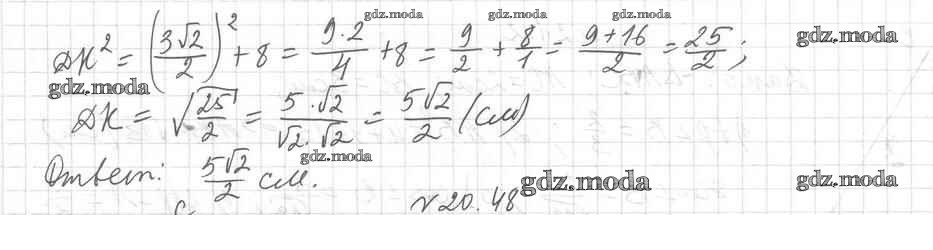 gdz.moda gdz.moda gdz.moda
DK² = (3√2/2)² + 8 = 9·2/4 + 8 = 9/2 + 8/1 = 9+16/2 = 25/2 ; gdz.moda
gdz.moda
DK = √25/2 = 5·√2/√2·√2 = 5√2/2 (см)
gdz.moda
Ответ: 5√2/2 см. gdz.moda gdz.moda
№20.48